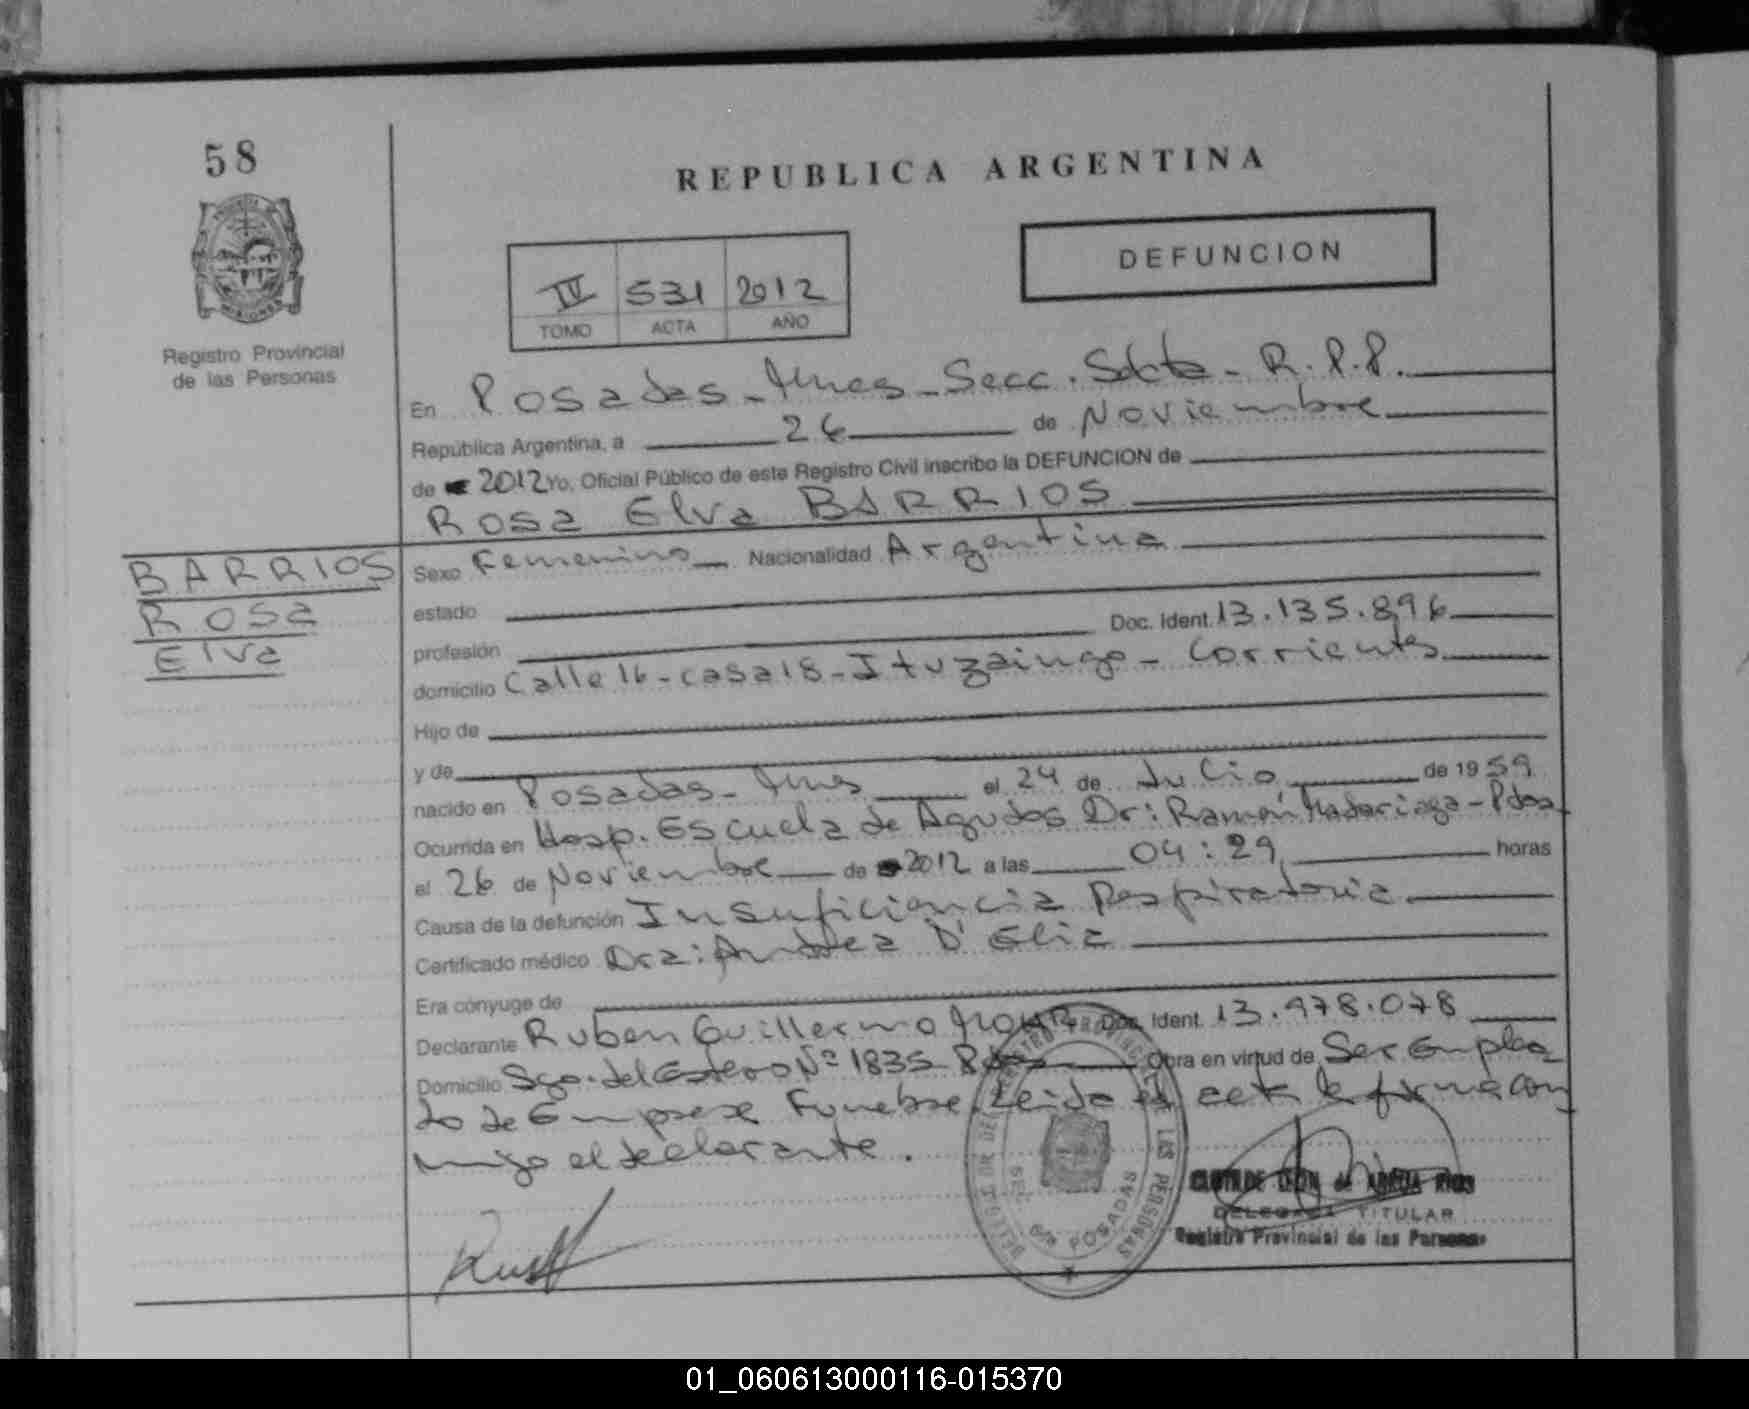 58
REPUBLICA ARGENTINA
DEFUNCION
IV 531 2012
TOMO ACTA AÑO
Registro Provincial
de las Personas
En Posadas - Mnes - Secc. Sexta - R.P.P.
República Argentina, a 26 de Noviembre
de 2012 Yo, Oficial Público de este Registro Civil inscribo la DEFUNCION de
Rosa Elva BARRIOS
BARRIOS
Rosa
Elva
Sexo Femenino Nacionalidad Argentina
estado
profesión Doc. Ident. 13.135.896
domicilio Calle 16 - casa 18 - Ituzaingo - Corrientes
Hijo de
y de
nacido en Posadas - Mnes el 24 de Julio de 1959
Ocurrida en Hosp. Escuela de Agudos Dr: Ramón Madariaga - Pdas
el 26 de Noviembre de 2012 a las 04:29 horas
Causa de la defunción Insuficiencia Respiratoria
Certificado médico Dra: Andrea D'Elia
Era cónyuge de
Declarante Ruben Guillermo Doc. Ident. 13.978.078
Domicilio Sgo. del Estero Nº 1835 Pdas Obra en virtud de Ser Emplea
do de Empresa Funebre. Leida el acta la firma con
migo el declarante.
POSADAS
DELEGADA TITULAR
Registro Provincial de las Personas
01_060613000116-015370